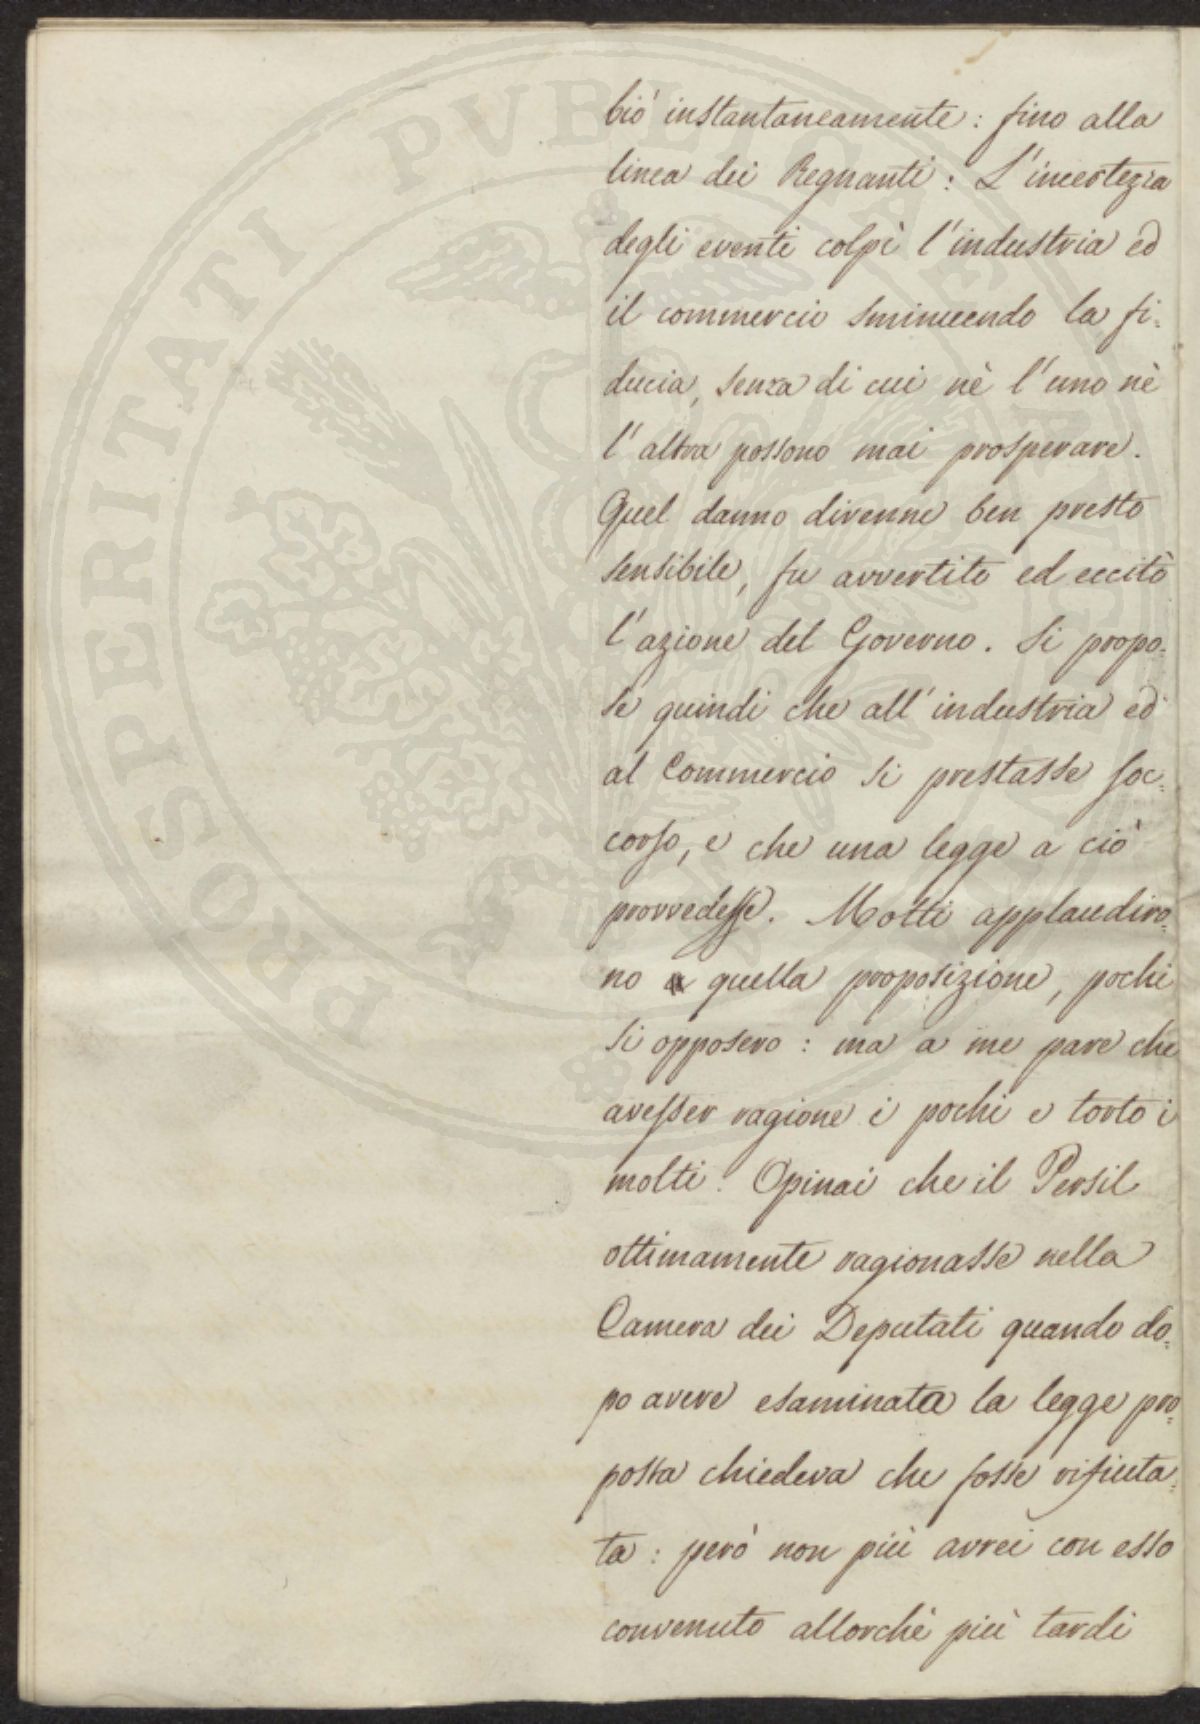 biò instantaneamente: fino alla
linea dei Regnanti: L'incertezza
degli eventi colpì l'industria ed
il commercio sminuendo la fi=
ducia, senza di cui nè l'uno nè
l'altra possono mai prosperare.
Quel danno divenne ben presto
sensibile, fu avvertito ed eccitò
l'azione del Governo. Si propo=
se quindi che all'industria ed
al Commercio si prestasse soc=
corso, e che una legge a ciò
provvedesse. Molti applaudiro=
no a quella proposizione, pochi
si opposero: ma a me pare che
avesser ragione i pochi e torto i
molti. Opinai che il Persil
ottimamente ragionasse nella
Camera dei Deputati quando do=
po avere esaminata la legge pro=
posta chiedeva che fosse rifiuta=
ta: però non più avrei con esso
convenuto allorchè più tardi
PROSPERITATI PVBLICAE